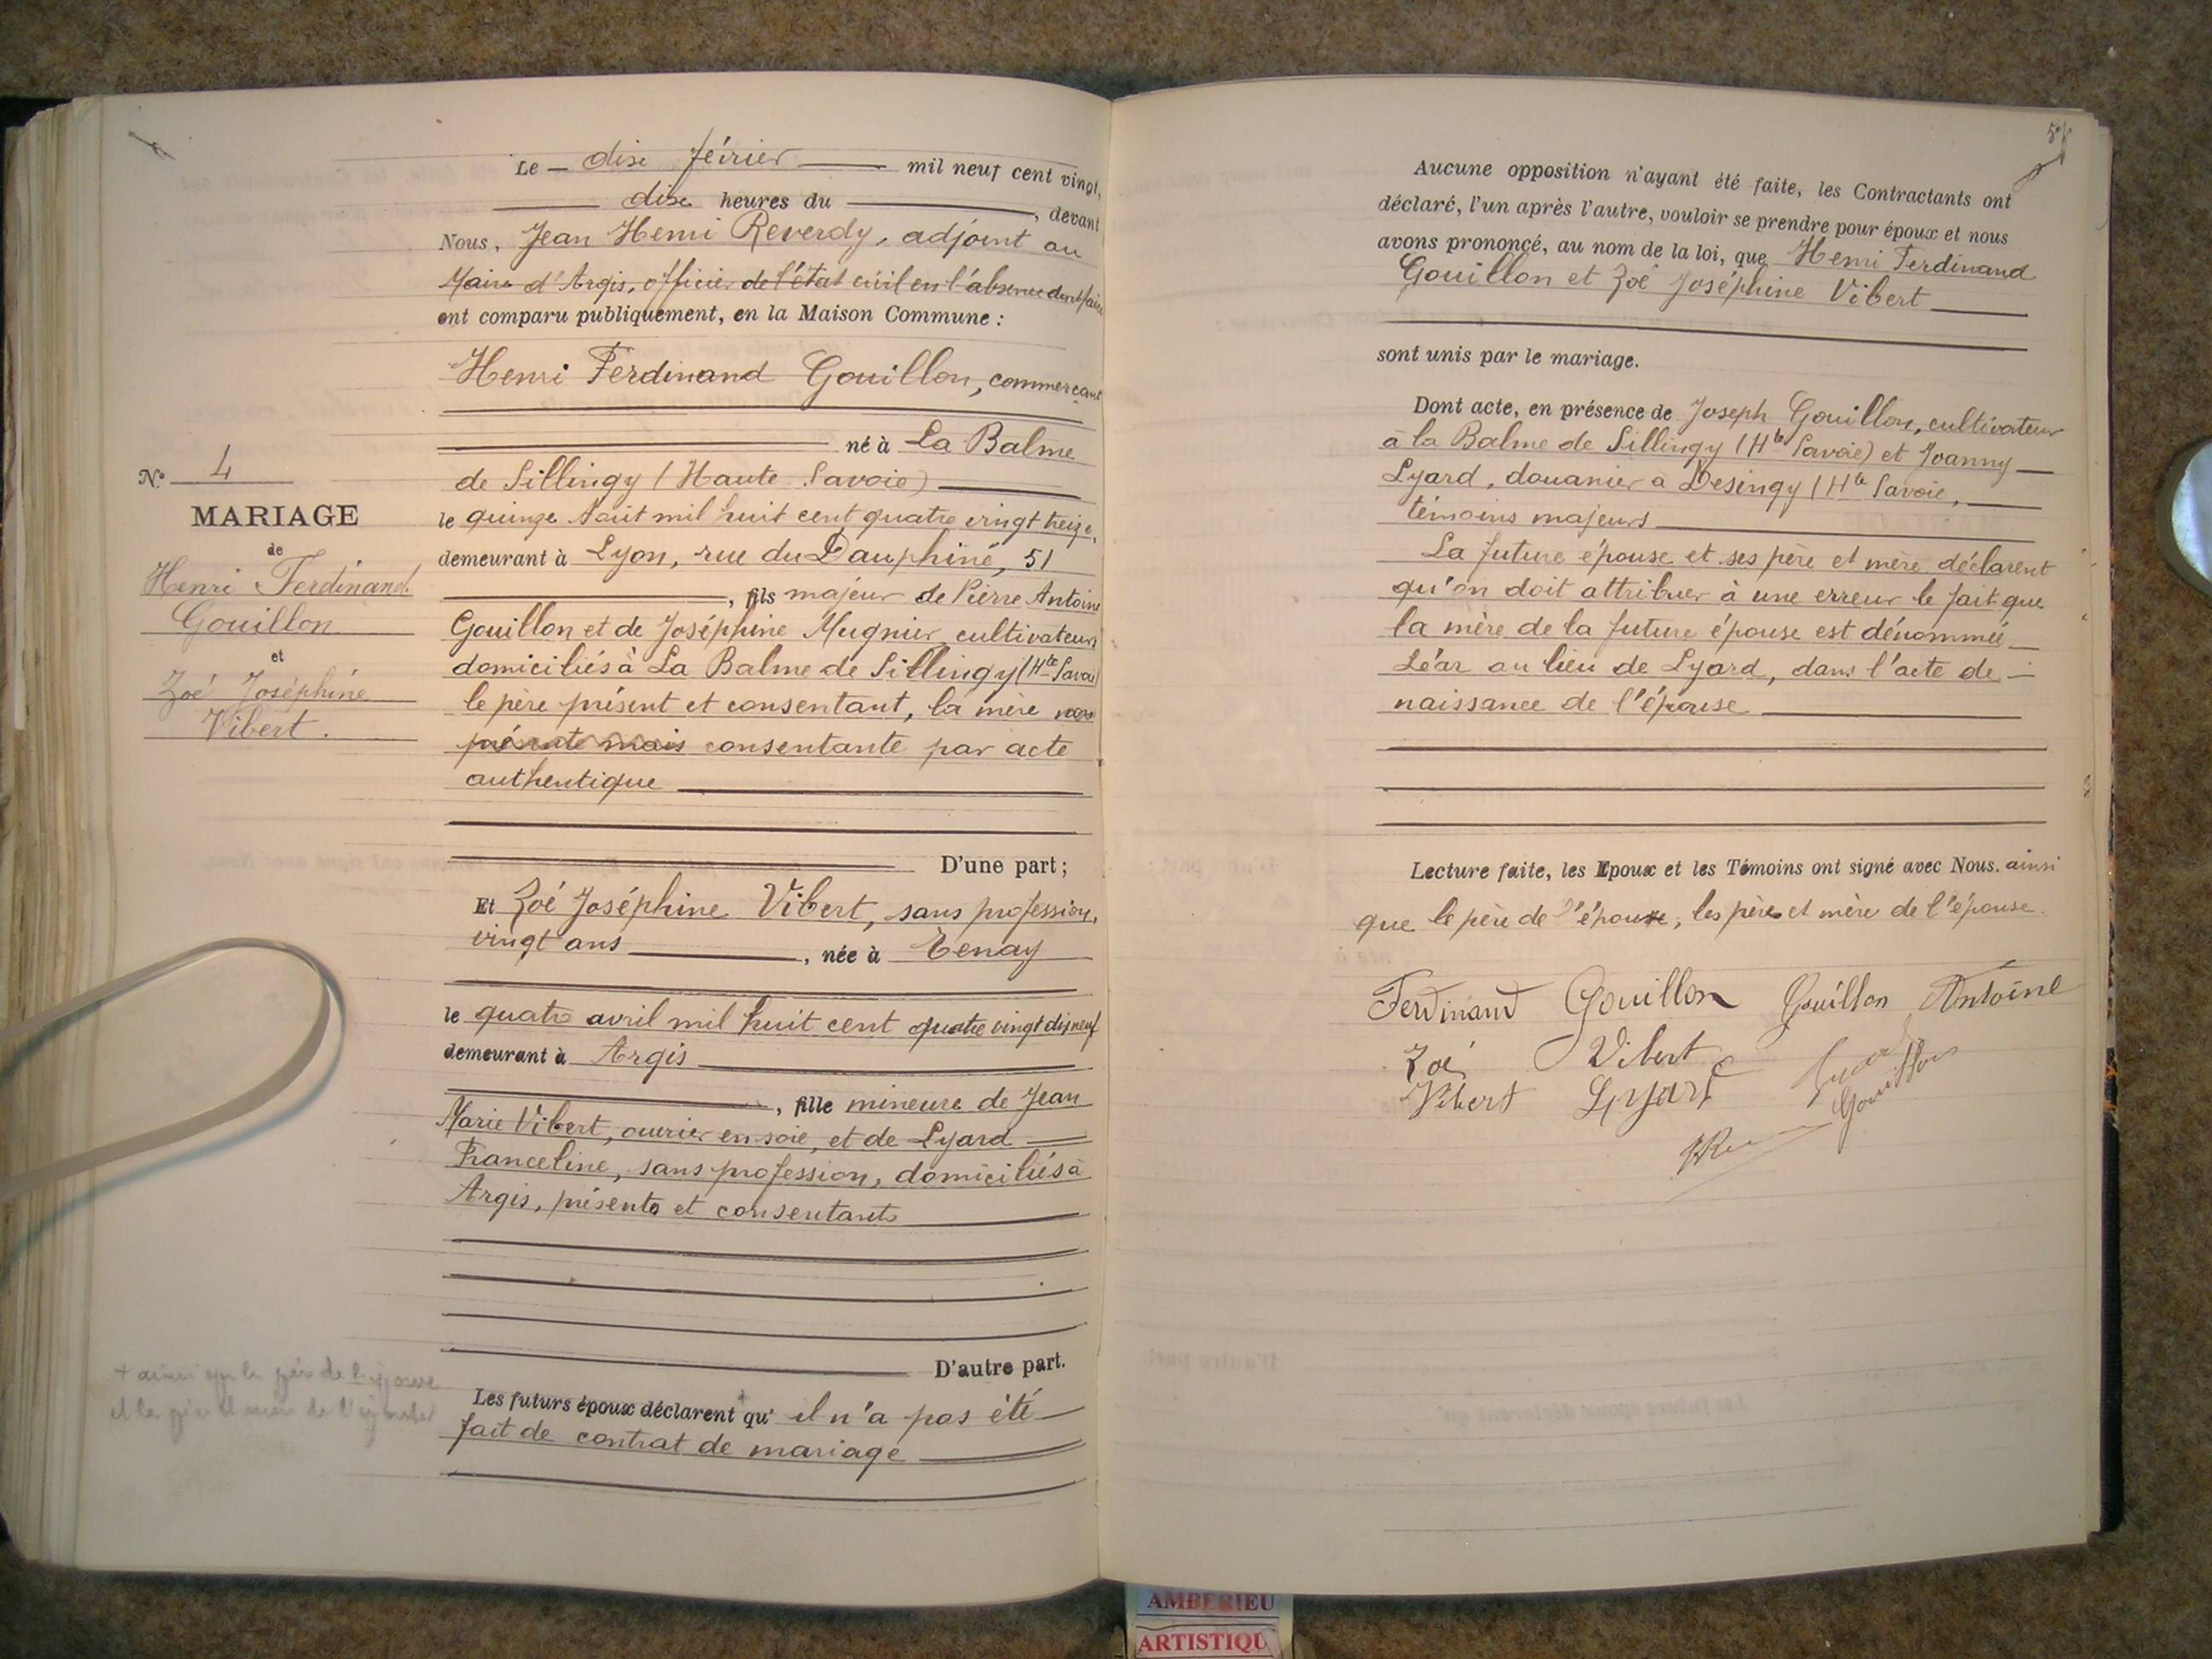 Le — dix février — mil neuf cent vingt,
dix heures du —, devant
Nous, Jean Henri Reverdy, adjoint au
Maire d'Argis, officier de l'état civil en l'absence du Maire
ont comparu publiquement, en la Maison Commune :
Henri Ferdinand Gouillon, commerçant
né à La Balme
de Sillingy (Haute Savoie)
le quinze Août mil huit cent quatre vingt treize,
demeurant à Lyon, rue du Dauphiné, 51
, fils majeur de Pierre Antoine
Gouillon et de Joséphine Mugnier cultivateurs
domiciliés à La Balme de Sillingy (Hte Savoie)
le père présent et consentant, la mère non
présente mais consentante par acte
authentique
D'une part ;
N° 4
MARIAGE
de
Henri Ferdinand
Gouillon
et
Zoé Joséphine
Vibert.
Et Zoé Joséphine Vibert, sans profession,
vingt ans, née à Tenay
le quatre avril mil huit cent quatre vingt dix neuf
demeurant à Argis
, fille mineure de Jean
Marie Vibert, ouvrier en soie, et de Lyard
Franceline, sans profession, domiciliés à
Argis, présents et consentants
D'autre part.
+ ainsi que le père de l'époux
et les père et mère de l'épouse
Les futurs époux déclarent + qu'il n'a pas été
fait de contrat de mariage
Aucune opposition n'ayant été faite, les Contractants ont
déclaré, l'un après l'autre, vouloir se prendre pour époux et nous
avons prononcé, au nom de la loi, que Henri Ferdinand
Gouillon et Zoé Joséphine Vibert
sont unis par le mariage.
Dont acte, en présence de Joseph Gouillon, cultivateur
à la Balme de Sillingy (Hte Savoie) et Joanny
Lyard, douanier à Desingy (Hte Savoie,
témoins majeurs
La future épouse et ses père et mère déclarent
qu'on doit attribuer à une erreur le fait que
la mère de la future épouse est dénommée
Léar au lieu de Lyard, dans l'acte de
naissance de l'épouse
Lecture faite, les Epoux et les Témoins ont signé avec Nous. ainsi
que le père de l'époux, les père et mère de l'épouse.
Ferdinand Gouillon Gouillon Antoine
Zoé Vibert
Vibert Lyard
Gouillon
AMBERIEU
ARTISTIQU